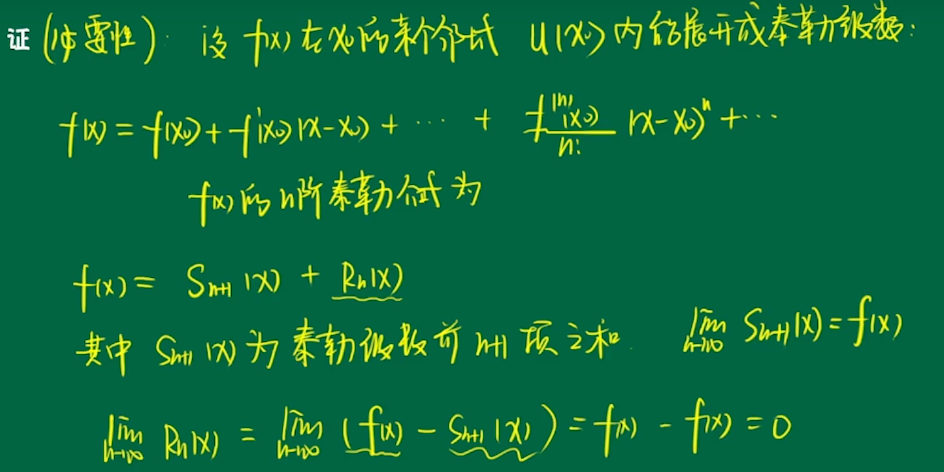 证 (必要性) 设 f(x) 在 x₀ 的某个邻域 U(x₀) 内能展开成泰勒级数:
f(x) = f(x₀) + f'(x₀)(x-x₀) + ⋯ + f⁽ⁿ⁾(x₀)/n! (x-x₀)ⁿ + ⋯
f(x) 的 n阶泰勒公式为
f(x) = Sₙ₊₁(x) + Rₙ(x)
其中 Sₙ₊₁(x) 为泰勒级数前 n+1 项之和. lim n→∞ Sₙ₊₁(x) = f(x)
lim n→∞ Rₙ(x) = lim n→∞ (f(x) - Sₙ₊₁(x)) = f(x) - f(x) = 0